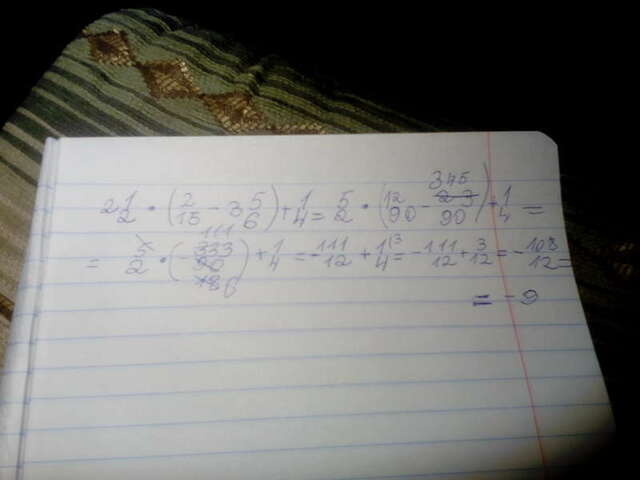 2 1/2 · (2/15 - 3 5/6) + 1/4 = 5/2 · (12/90 - 345/90) + 1/4 =
= 5/2 · (- 333/90) + 1/4 = - 111/12 + 1/4 = - 111/12 + 3/12 = - 108/12 =
= - 9